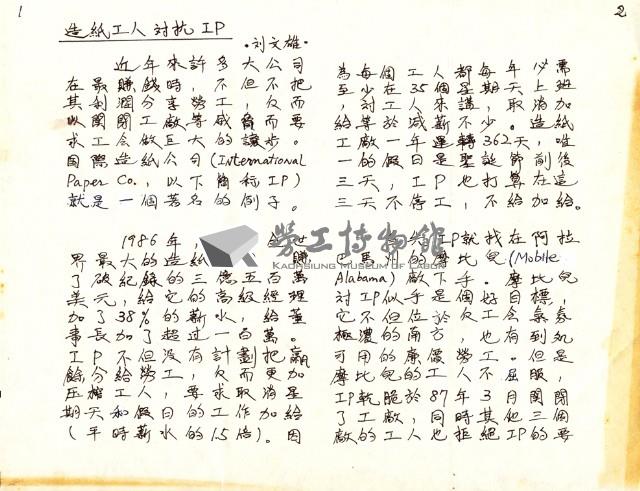 1
造紙工人対抗IP
·刘文雄·
近年來許多大公司
在最賺錢時，不但不把
其利潤分享勞工，反而
以関閉工廠等威脅而要
求工会做巨大的讓步。
国際造紙公司(International
Paper Co., 以下簡称IP)
就是一個著名的例子。
1986年，
世
界最大的造紙
賺
了破紀錄的三億五百萬
美元，給它的高級經理
加了38%的薪水，給董
事長加了超过一百萬。
IP不但没有計劃把贏
餘分給勞工，反而更加
压榨工人，要求取消星
期天和假日的工作加給
(平時薪水的1.5倍)。因
2
為每個工人都每年必需
至少在35個星期天上班
，対工人來講，取消加
給等於減薪不少。造紙
工廠一年運轉362天，唯
一的假日是聖誕節前後
三天，IP也打算在這
三天不停工，不給加給。
IP就找在阿拉
巴馬州的摩比兒(Mobile
Alabama)廠下手。摩比兒
対IP似乎是個好目標，
它不但位於反工会氣氛
極濃的南方，也有到処
可用的廉價勞工。但是
摩比兒的工人不屈服，
IP乾脆於87年3月関閉
了工廠，同時其他三個
廠的工人也拒絕IP的要
勞工博物館
KAOHSIUNG MUSEUM OF LABOR